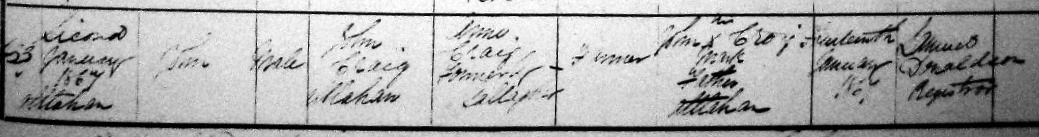 53
Second
January
1867
Altahan
John
Male
John
Craig
Altahan
Anne
Craig
formerly
Callaghan
Farmer
John X Craig
his
Mark
Father
Altahan
Fourteenth
January
186
James
Donaldson
Registrar